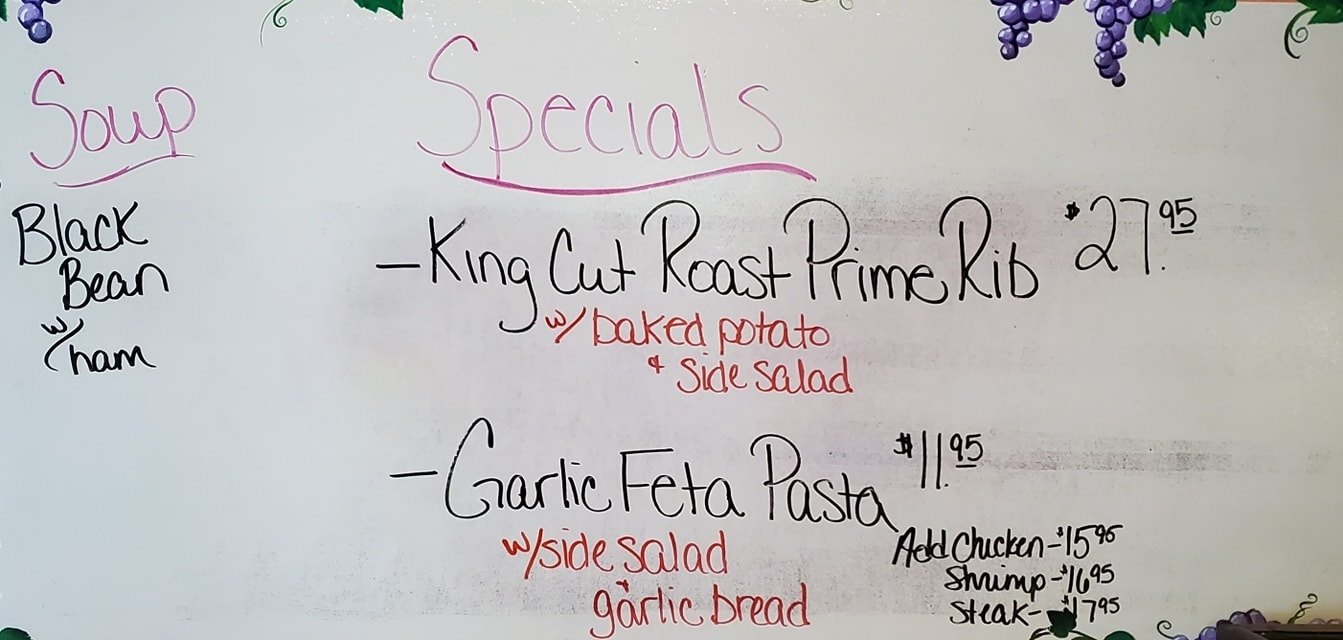 Soup
Black
Bean
w/
ham
Specials
- King Cut Roast Prime Rib $27.95
w/ baked potato
& Side Salad
- Garlic Feta Pasta $11.95
w/side salad
&
garlic bread
Add Chicken - $15.95
Shrimp - $16.95
Steak - $17.95